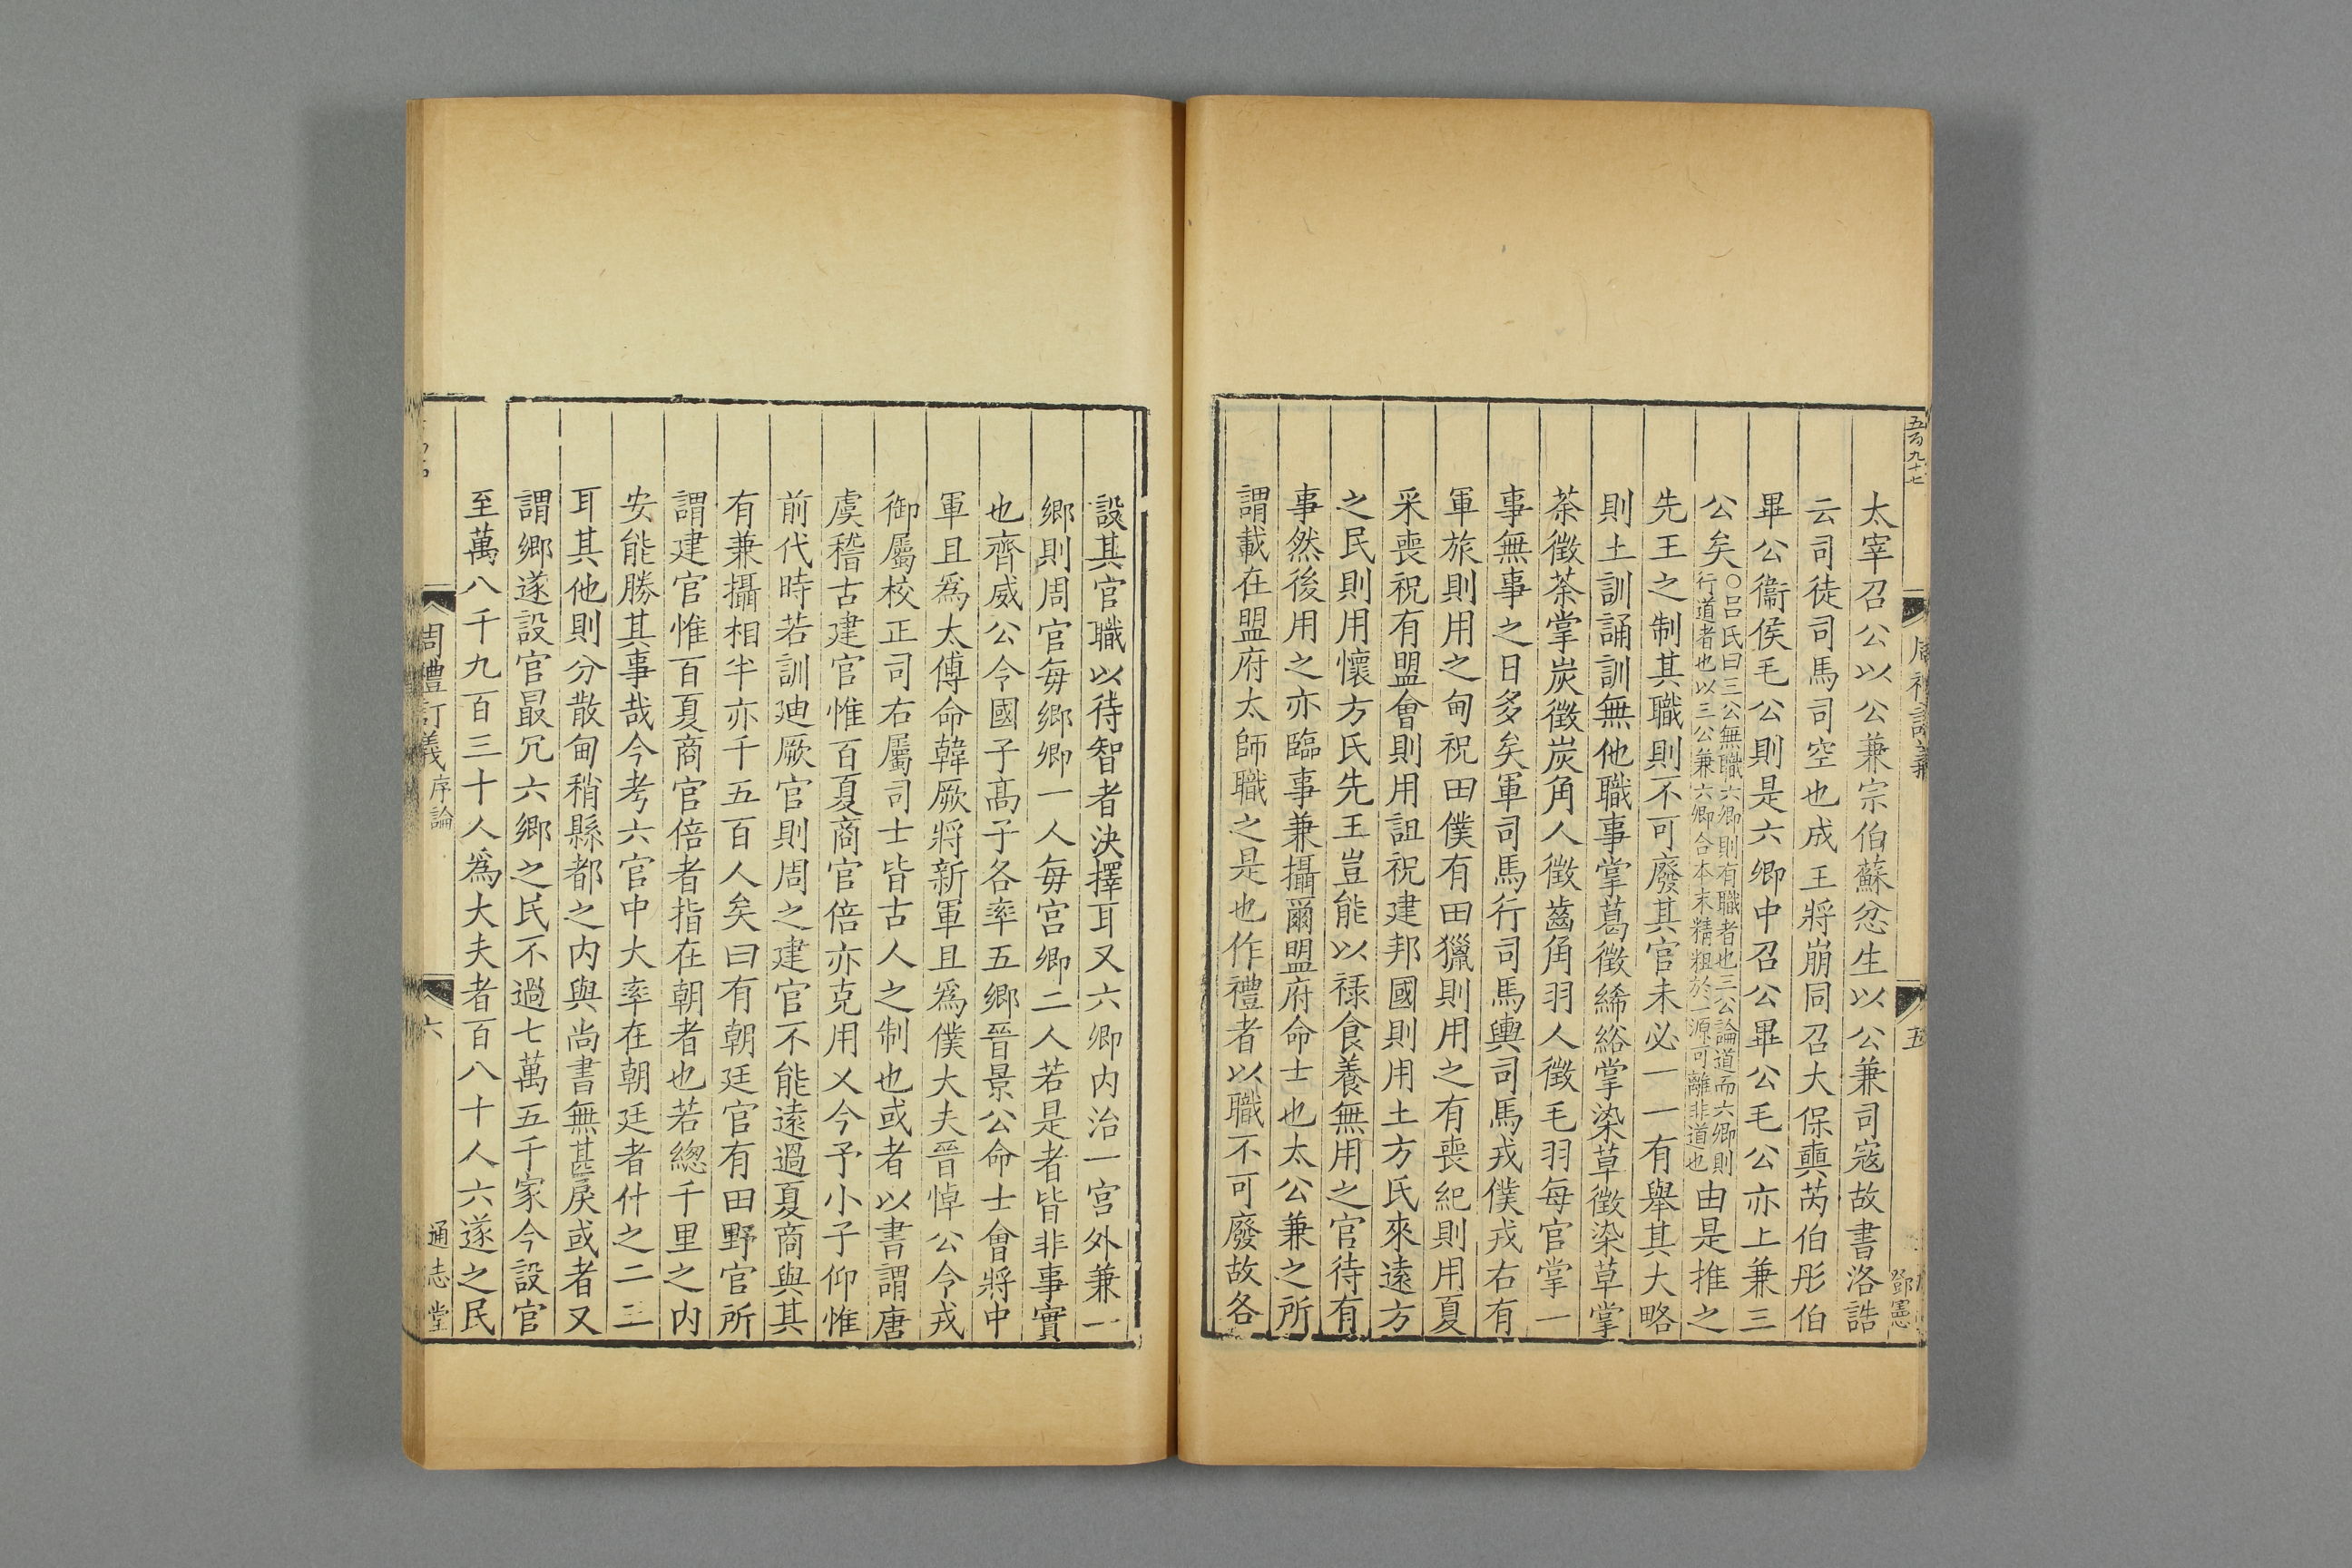 五百九十七
周禮訂義
五
鄧憲
太宰召公以公兼宗伯蘇忿生以公兼司寇故書洛誥
云司徒司馬司空也成王將崩同召大保奭芮伯彤伯
畢公衞侯毛公則是六卿中召公畢公毛公亦上兼三
公矣○呂氏曰三公無職六卿則有職者也三公論道而六卿則
行道者也以三公兼六卿合本末精粗於一源可離非道也由是推之
先王之制其職則不可廢其官未必一一有舉其大略
則土訓誦訓無他職事掌葛徵絺綌掌染草徵染草掌
荼徵荼掌炭徵炭角人徵齒角羽人徵毛羽每官掌一
事無事之日多矣軍司馬行司馬輿司馬戎僕戎右有
軍旅則用之甸祝田僕有田獵則用之有喪紀則用夏
采喪祝有盟會則用詛祝建邦國則用土方氏來遠方
之民則用懷方氏先王豈能以祿食養無用之官待有
事然後用之亦臨事兼攝爾盟府命士也太公兼之所
謂載在盟府太師職之是也作禮者以職不可廢故各
設其官職以待智者決擇耳又六卿内治一宫外兼一
鄉則周官每鄉卿一人每宫卿二人若是者皆非事實
也齊威公令國子髙子各率五鄉晉景公命士會將中
軍且爲太傅命韓厥將新軍且爲僕大夫晉悼公令戎
御屬校正司右屬司士皆古人之制也或者以書謂唐
虞稽古建官惟百夏商官倍亦克用乂今予小子仰惟
前代時若訓迪厥官則周之建官不能遠過夏商與其
有兼攝相半亦千五百人矣曰有朝廷官有田野官所
謂建官惟百夏商官倍者指在朝者也若總千里之内
安能勝其事哉今考六官中大率在朝廷者什之二三
耳其他則分散甸稍縣都之内與尚書無甚戾或者又
謂鄉遂設官最冗六鄉之民不過七萬五千家今設官
至萬八千九百三十人爲大夫者百八十人六遂之民
周禮訂義 序論
六
通志堂